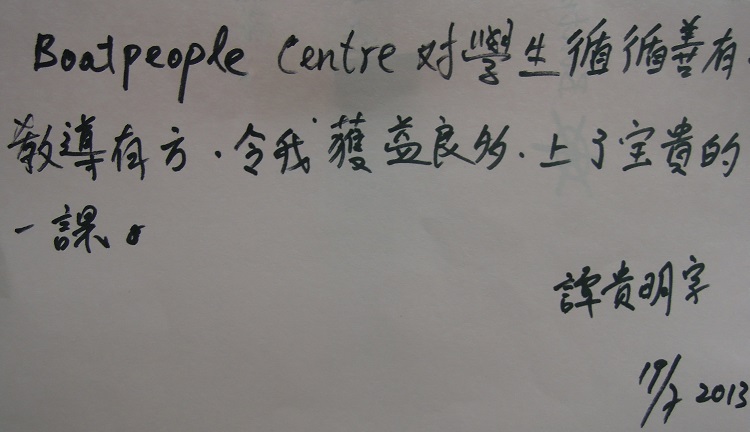 Boatpeople Centre 对學生循循善有
教導有方.令我獲益良多.上了宝貴的
一課。
譚贵明字
19/7 2013